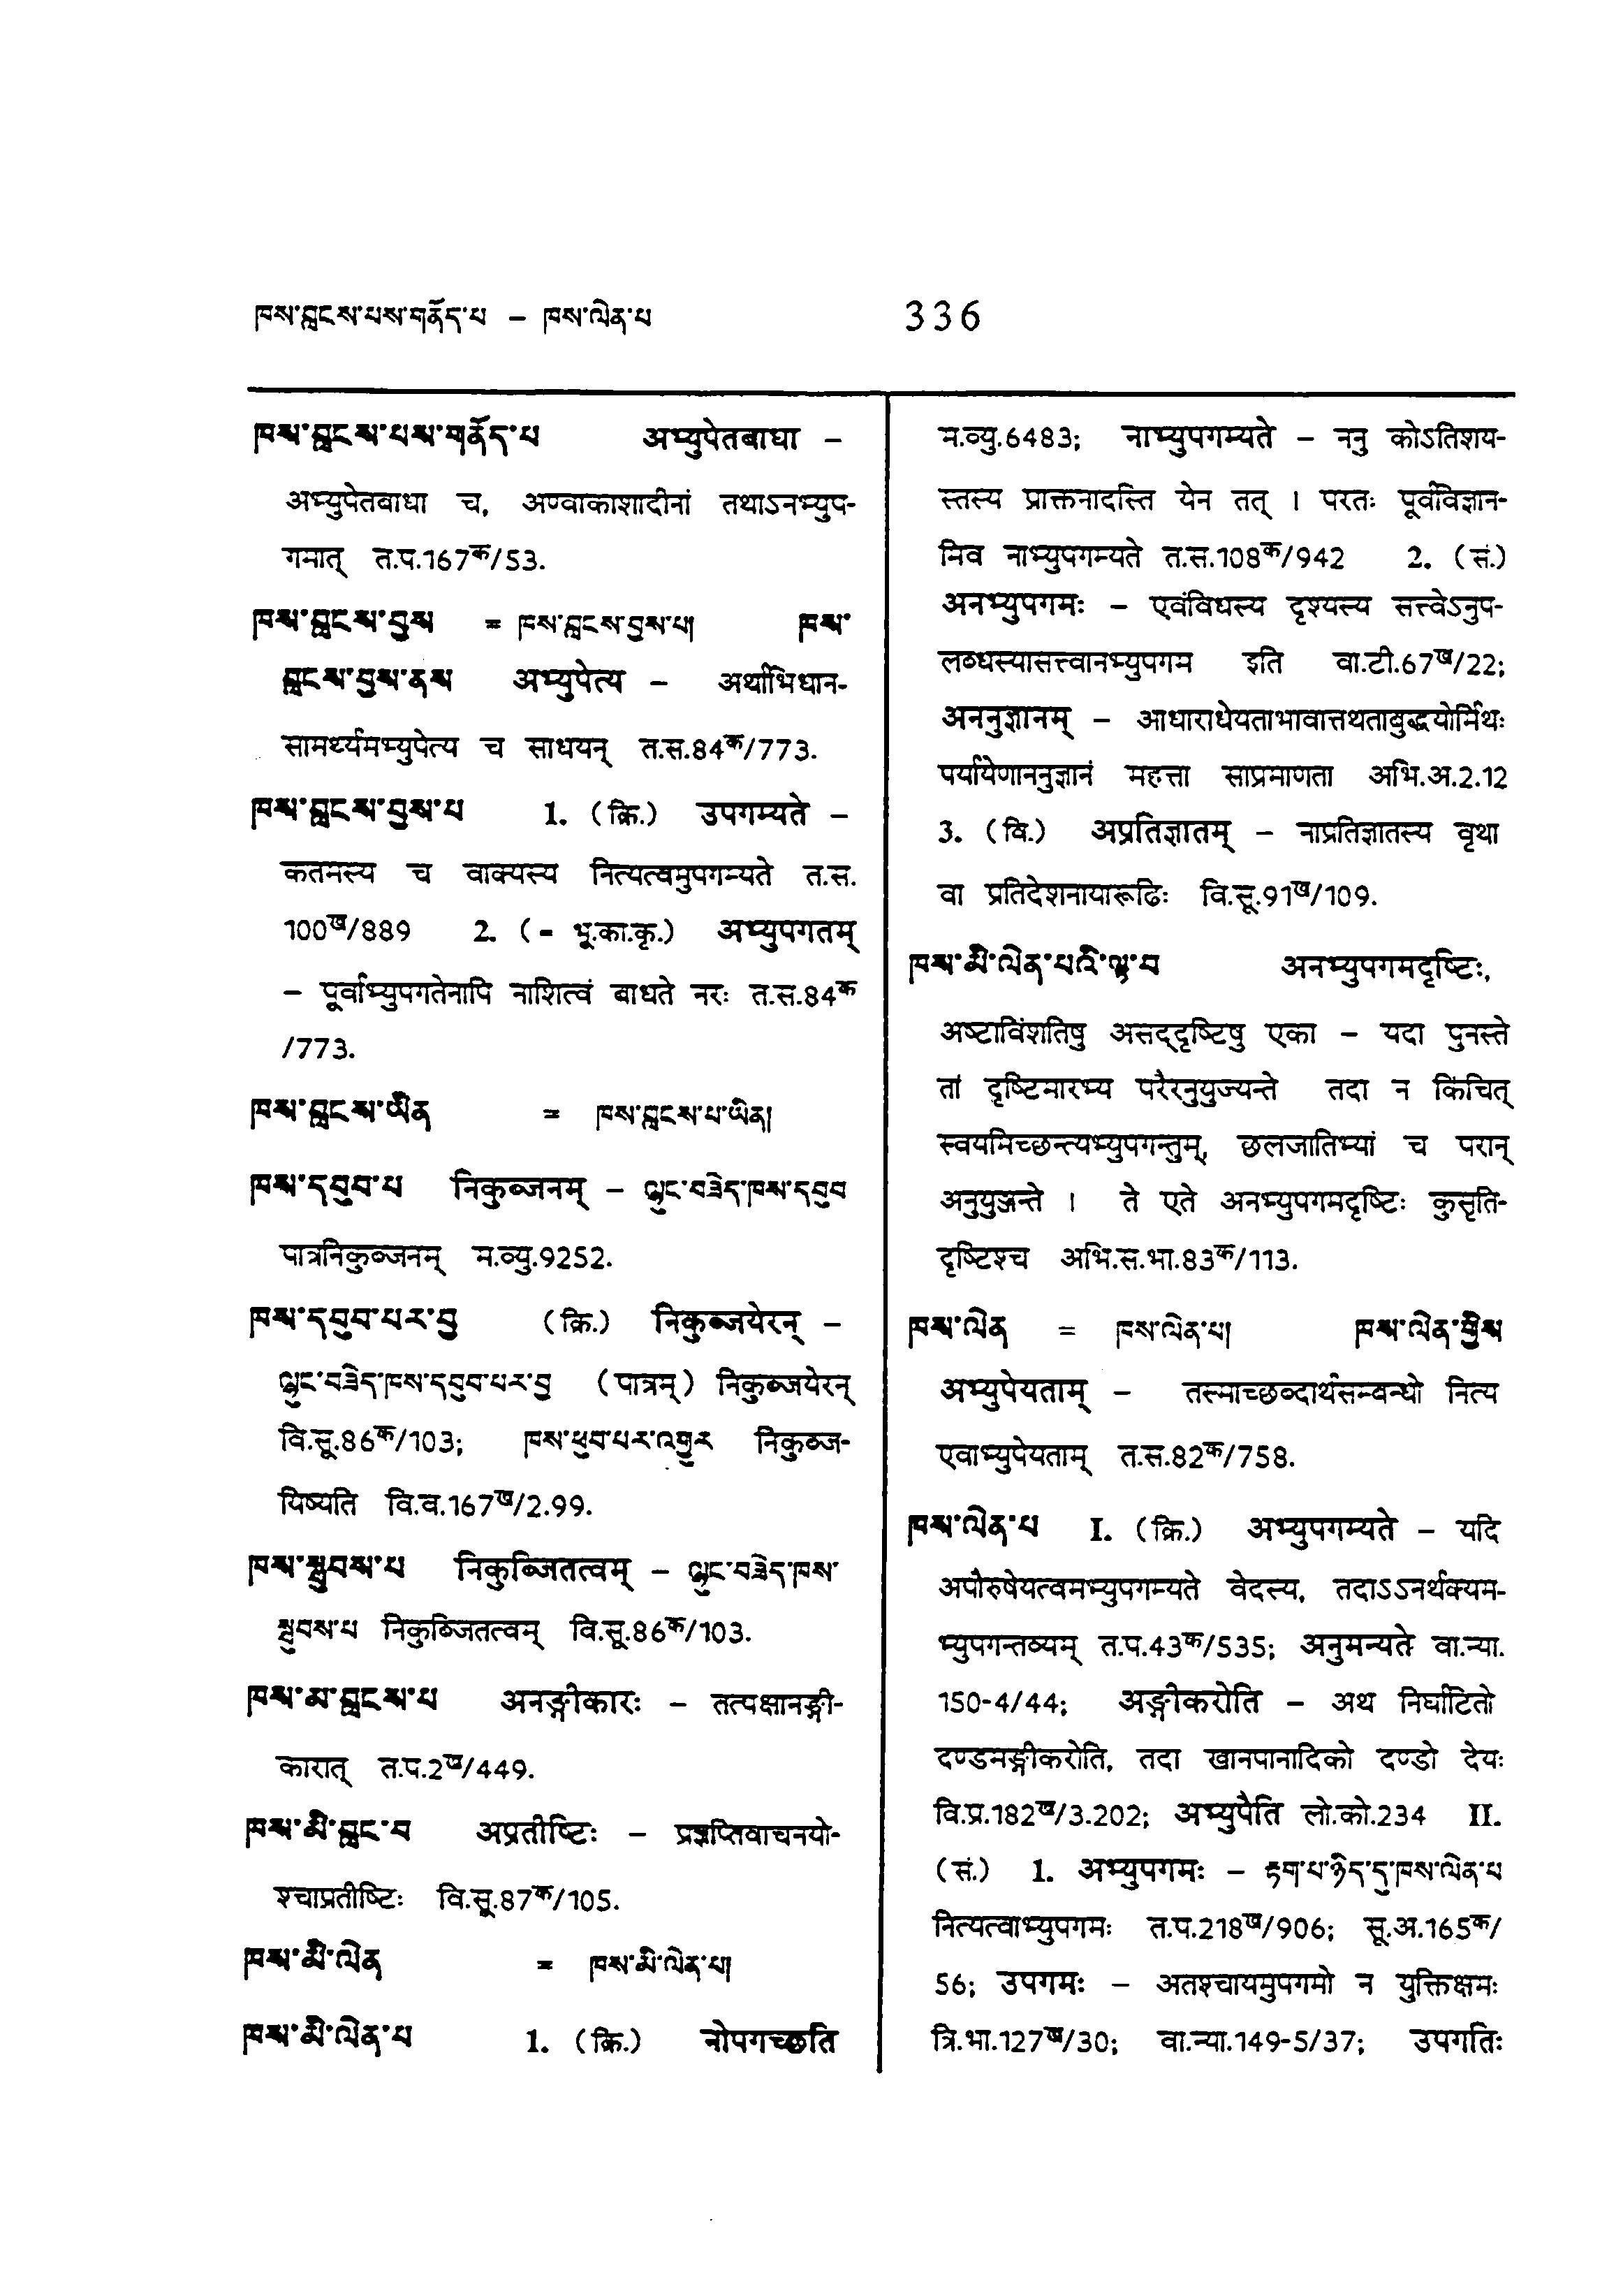 ཁས་བླངས་པས་གནོད་པ – ཁས་ལེན་པ 336
ཁས་བླངས་པས་གནོད་པ अभ्युपेतबाधा –
अभ्युपेतबाधा च, अण्वाकाशादीनां तथाऽनभ्युप-
गमात् त.प.167क/53.
ཁས་བླངས་བྱས = ཁས་བླངས་བྱས་པ། ཁས་
བླངས་བྱས་ནས अभ्युपेत्य – अर्थाभिधान-
सामर्थ्यमभ्युपेत्य च साधयन् त.स.84क/773.
ཁས་བླངས་བྱས་པ 1. (क्रि.) उपगम्यते –
कतमस्य च वाक्यस्य नित्यत्वमुपगम्यते त.स.
100ख/889 2. (= भू.का.कृ.) अभ्युपगतम्
– पूर्वाभ्युपगतेनापि नाशित्वं बाधते नरः त.स.84क
/773.
ཁས་བླངས་ཡིན = ཁས་བླངས་པ་ཡིན།
ཁས་དབུབ་པ निकुब्जनम् – ལྷུང་བཟེད་ཁས་དབུབ
पात्रनिकुब्जनम् म.व्यु.9252.
ཁས་དབུབ་པར་བྱ (क्रि.) निकुब्जयेरन् –
ལྷུང་བཟེད་ཁས་དབུབ་པར་བྱ (पात्रम्) निकुब्जयेरन्
वि.सू.86क/103; ཁས་ཕུབ་པར་འགྱུར निकुब्ज-
यिष्यति वि.व.167ख/2.99.
ཁས་སྦུབས་པ निकुब्जितत्वम् – ལྷུང་བཟེད་ཁས་
སྦུབས་པ निकुब्जितत्वम् वि.सू.86क/103.
ཁས་མ་བླངས་པ अनङ्गीकारः – तत्पक्षानङ्गी-
कारात् त.प.2ख/449.
ཁས་མི་བླང་བ अप्रतीष्टिः – प्रज्ञप्तिवाचनयो-
श्चाप्रतीष्टिः वि.सू.87क/105.
ཁས་མི་ལེན = ཁས་མི་ལེན་པ།
ཁས་མི་ལེན་པ 1. (क्रि.) नोपगच्छति
म.व्यु.6483; नाभ्युपगम्यते – ननु कोऽतिशय-
स्तस्य प्राक्तनादस्ति येन तत् । परतः पूर्वविज्ञान-
मिव नाभ्युपगम्यते त.स.108क/942 2. (सं.)
अनभ्युपगमः – एवंविधस्य दृश्यस्य सत्त्वेऽनुप-
लब्धस्यासत्त्वानभ्युपगम इति वा.टी.67ख/22;
अननुज्ञानम् – आधाराधेयताभावात्तथताबुद्धयोर्मिथः
पर्यायेणाननुज्ञानं महत्ता साप्रमाणता अभि.अ.2.12
3. (वि.) अप्रतिज्ञातम् – नाप्रतिज्ञातस्य वृथा
वा प्रतिदेशनायारूढिः वि.सू.91ख/109.
ཁས་མི་ལེན་པའི་ལྟ་བ अनभ्युपगमदृष्टिः,
अष्टाविंशतिषु असद्दृष्टिषु एका – यदा पुनस्ते
तां दृष्टिमारभ्य परैरनुयुज्यन्ते तदा न किंचित्
स्वयमिच्छन्त्यभ्युपगन्तुम्, छलजातिभ्यां च परान्
अनुयुञ्जन्ते । ते एते अनभ्युपगमदृष्टिः कुसृति-
दृष्टिश्च अभि.स.भा.83क/113.
ཁས་ལེན = ཁས་ལེན་པ། ཁས་ལེན་གྱིས
अभ्युपेयताम् – तस्माच्छब्दार्थसम्बन्धो नित्य
एवाभ्युपेयताम् त.स.82क/758.
ཁས་ལེན་པ I. (क्रि.) अभ्युपगम्यते – यदि
अपौरुषेयत्वमभ्युपगम्यते वेदस्य, तदाऽऽनर्थक्यम-
भ्युपगन्तव्यम् त.प.43क/535; अनुमन्यते वा.न्या.
150-4/44; अङ्गीकरोति – अथ निर्घाटितो
दण्डमङ्गीकरोति, तदा खानपानादिको दण्डो देयः
वि.प्र.182ख/3.202; अभ्युपैति लो.को.234 II.
(सं.) 1. अभ्युपगमः – རྟག་པ་ཉིད་དུ་ཁས་ལེན་པ
नित्यत्वाभ्युपगमः त.प.218ख/906; सू.अ.165क/
56; उपगमः – अतश्चायमुपगमो न युक्तिक्षमः
त्रि.भा.127ख/30; वा.न्या.149-5/37; उपगतिः